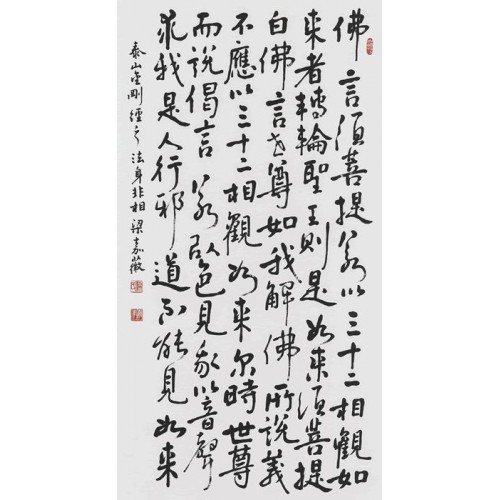 佛言須菩提若以三十二相觀如
来者轉輪聖王則是如来須菩提
白佛言世尊如我解佛所說義
不應以三十二相觀如来尔時世尊
而說偈言若以色見我以音聲
求我是人行邪道不能見如来
泰山金剛經之法身非相梁嘉薇